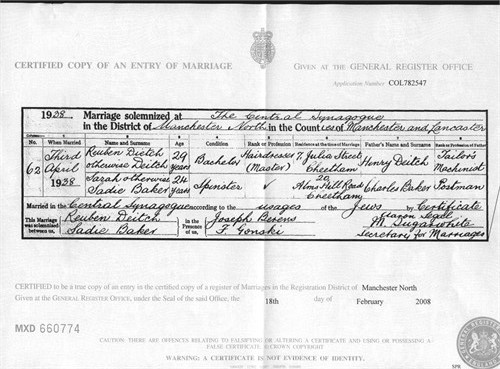 CERTIFIED COPY OF AN ENTRY OF MARRIAGE
GIVEN AT THE GENERAL REGISTER OFFICE
Application Number COL782547
1938. Marriage solemnized at The Central Synagogue
in the District of Manchester North in the Counties of Manchester and Lancaster
No. When Married Name and Surname Age Condition Rank or Profession Residence at the time of Marriage Father's Name and Surname Rank or Profession of Father
62 Third April 1938 Reuben Deitch otherwise Deitch 29 years Bachelor Hairdresser (Master) 7, Julia Street Cheetham Henry Deitch Tailor's Machinist
Sarah otherwise Sadie Baker 24 years Spinster 20 Elms Hill Road Cheetham Charles Baker Postman
Married in the Central Synagogue according to the usages of the Jews by Certificate
This Marriage was solemnized between us,
Reuben Deitch
Sadie Baker
in the Presence of us,
Joseph Berens
F. Gonski
M. Sugarwhite
Secretary for Marriages
CERTIFIED to be a true copy of an entry in the certified copy of a register of Marriages in the Registration District of Manchester North
Given at the GENERAL REGISTER OFFICE, under the Seal of the said Office, the 18th day of February 2008
MXD 660774
CAUTION: THERE ARE OFFENCES RELATING TO FALSIFYING OR ALTERING A CERTIFICATE AND USING OR POSSESSING A
FALSE CERTIFICATE. © CROWN COPYRIGHT
WARNING: A CERTIFICATE IS NOT EVIDENCE OF IDENTITY.
SPR